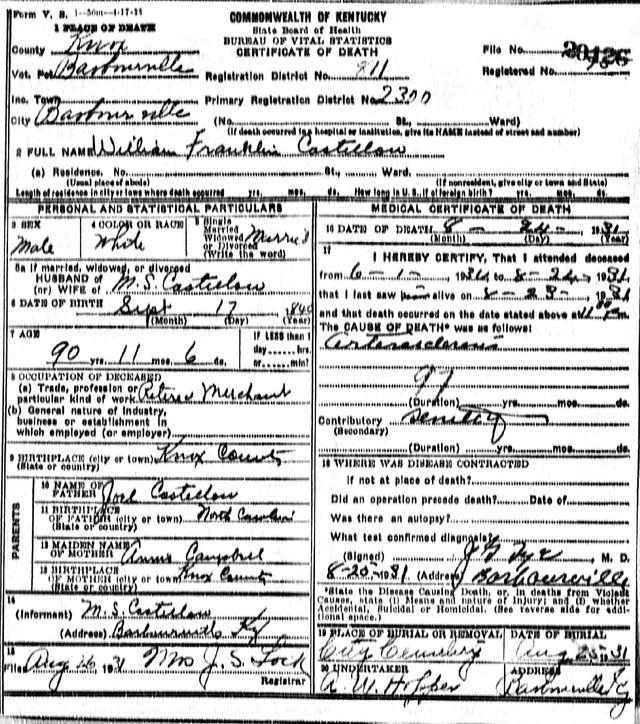 Form V. S. 1-50m-4-17-28
COMMONWEALTH OF KENTUCKY
State Board of Health
BUREAU OF VITAL STATISTICS
CERTIFICATE OF DEATH
1 PLACE OF DEATH
County Knox
File No.
Vot. Pct Barbourville
Registration District No. 811
Registered No.
Inc. Town
Primary Registration District No. 2300
City Barbourville (No. St., Ward)
(If death occurred in a hospital or institution, give its NAME instead of street and number)
2 FULL NAME William Franklin Costellow
(a) Residence. No. St., Ward.
(Usual place of abode) (If nonresident, give city or town and State)
Length of residence in city or town where death occurred yrs. mos. ds. How long in U. S., if of foreign birth? yrs. mos. ds.
PERSONAL AND STATISTICAL PARTICULARS
3 SEX
Male
4 COLOR OR RACE
White
5 Single
Married
Widowed
or Divorced
(Write the word)
Married
5a If married, widowed, or divorced
HUSBAND OF
(or) WIFE OF M. S. Costellow
6 DATE OF BIRTH Sept 17 1840
(Month) (Day) (Year)
7 AGE
90 yrs. 11 mos. 6 ds.
If LESS than 1
day hrs.
or min?
8 OCCUPATION OF DECEASED
(a) Trade, profession or
particular kind of work Retired Merchant
(b) General nature of industry,
business or establishment in
which employed (or employer)
9 BIRTHPLACE (city or town) Knox County
(State or country)
PARENTS
10 NAME OF
FATHER Joel Costellow
11 BIRTHPLACE
OF FATHER (city or town) North Carolina
(State or country)
12 MAIDEN NAME
OF MOTHER Annie Campbell
13 BIRTHPLACE
OF MOTHER (city or town) Knox County
(State or country)
14
(Informant) M. S. Costellow
(Address) Barbourville Ky
15
Filed Aug 26 1931 Mrs J. S. Lock
Registrar
MEDICAL CERTIFICATE OF DEATH
16 DATE OF DEATH 8- 24- 1931
(Month) (Day) (Year)
17
I HEREBY CERTIFY, That I attended deceased
from 6-1- 1931, to 8-24, 1931,
that I last saw him alive on 8-23- 1931
and that death occurred on the date stated above at 11
The CAUSE OF DEATH* was as follows:
Arteriosclerosis
97
(Duration) yrs. mos. ds.
Contributory Senility
(Secondary)
(Duration) yrs. mos. ds.
18 WHERE WAS DISEASE CONTRACTED
If not at place of death?
Did an operation precede death? Date of
Was there an autopsy?
What test confirmed diagnosis?
(Signed) M. D.
8-25-, 1931 (Address) Barbourville
*State the Disease Causing Death, or, in deaths from Violent
Causes, state (1) Means and nature of Injury; and (2) whether
Accidental, Suicidal or Homicidal. (See reverse side for addi-
tional space.)
19 PLACE OF BURIAL OR REMOVAL
City Cemetery
DATE OF BURIAL
Aug 25-31
20 UNDERTAKER
A. W. Hopper
ADDRESS
Barbourville Ky